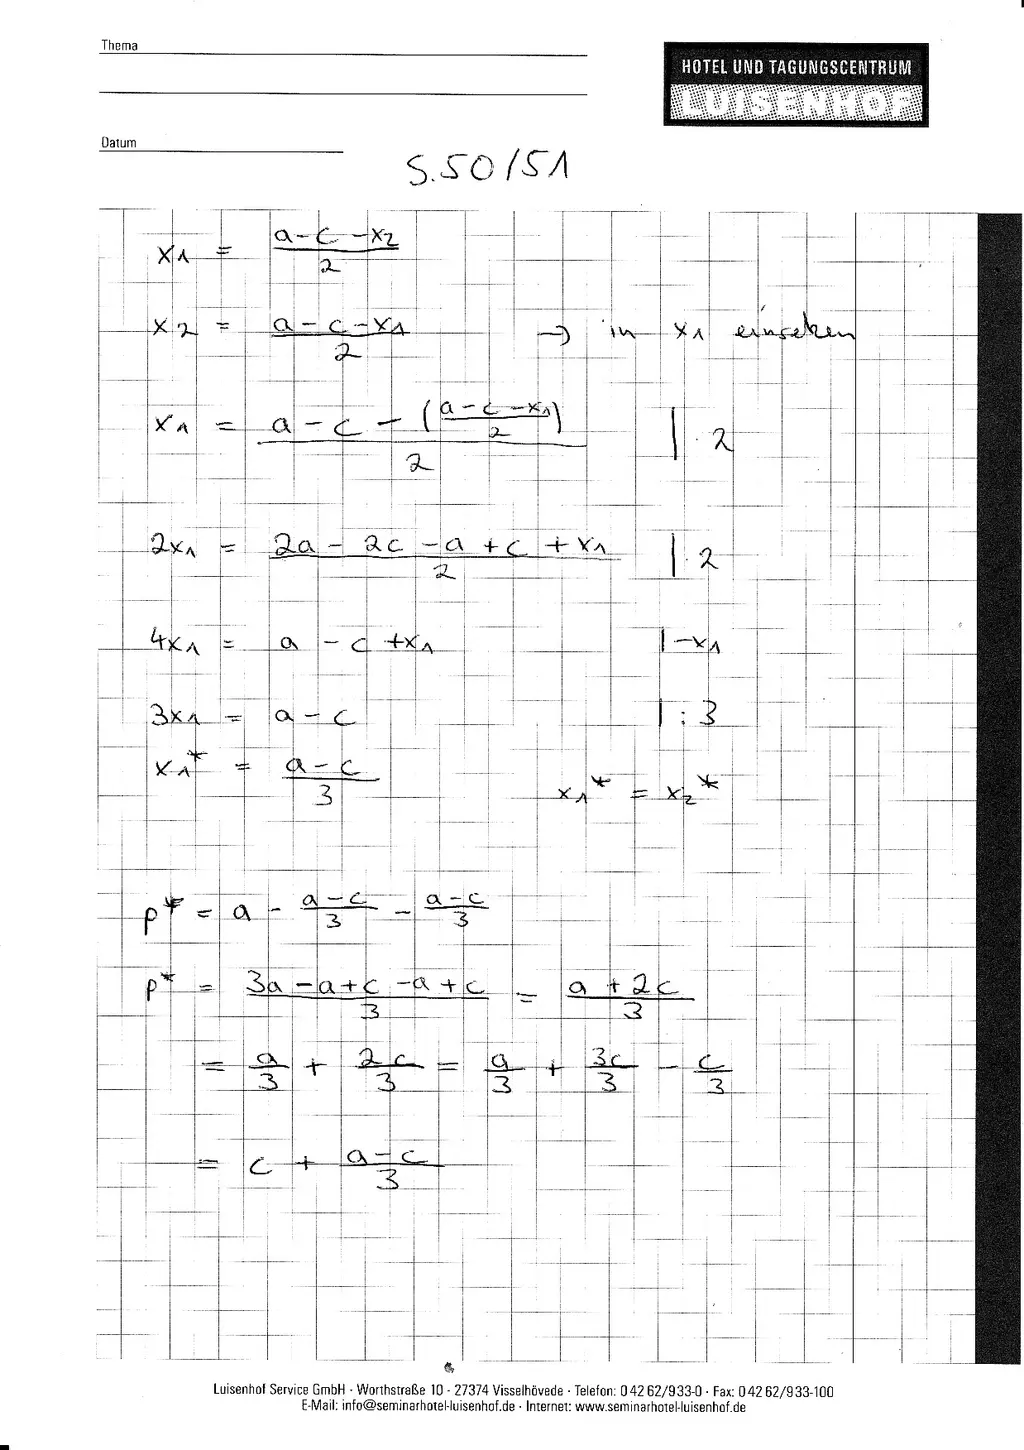 Thema
HOTEL UND TAGUNGSCENTRUM
LUISENHOF
Datum
S. 50/51
x1 = (a - c - x2)/2
x2 = (a - c - x1)/2 → in x1 einsetzen
x1 = (a - c - ((a - c - x1)/2))/2 | · 2
2x1 = (2a - 2c - a + c + x1)/2 | · 2
4x1 = a - c + x1 | -x1
3x1 = a - c | : 3
x1* = (a - c)/3 x1* = x2*
p* = a - (a - c)/3 - (a - c)/3
p* = (3a - a + c - a + c)/3 = (a + 2c)/3
= a/3 + 2c/3 = a/3 + 3c/3 - c/3
= c + (a - c)/3
Luisenhof Service GmbH · Worthstraße 10 · 27374 Visselhövede · Telefon: 0 42 62/9 33-0 · Fax: 0 42 62/9 33-100
E-Mail: info@seminarhotel-luisenhof.de · Internet: www.seminarhotel-luisenhof.de